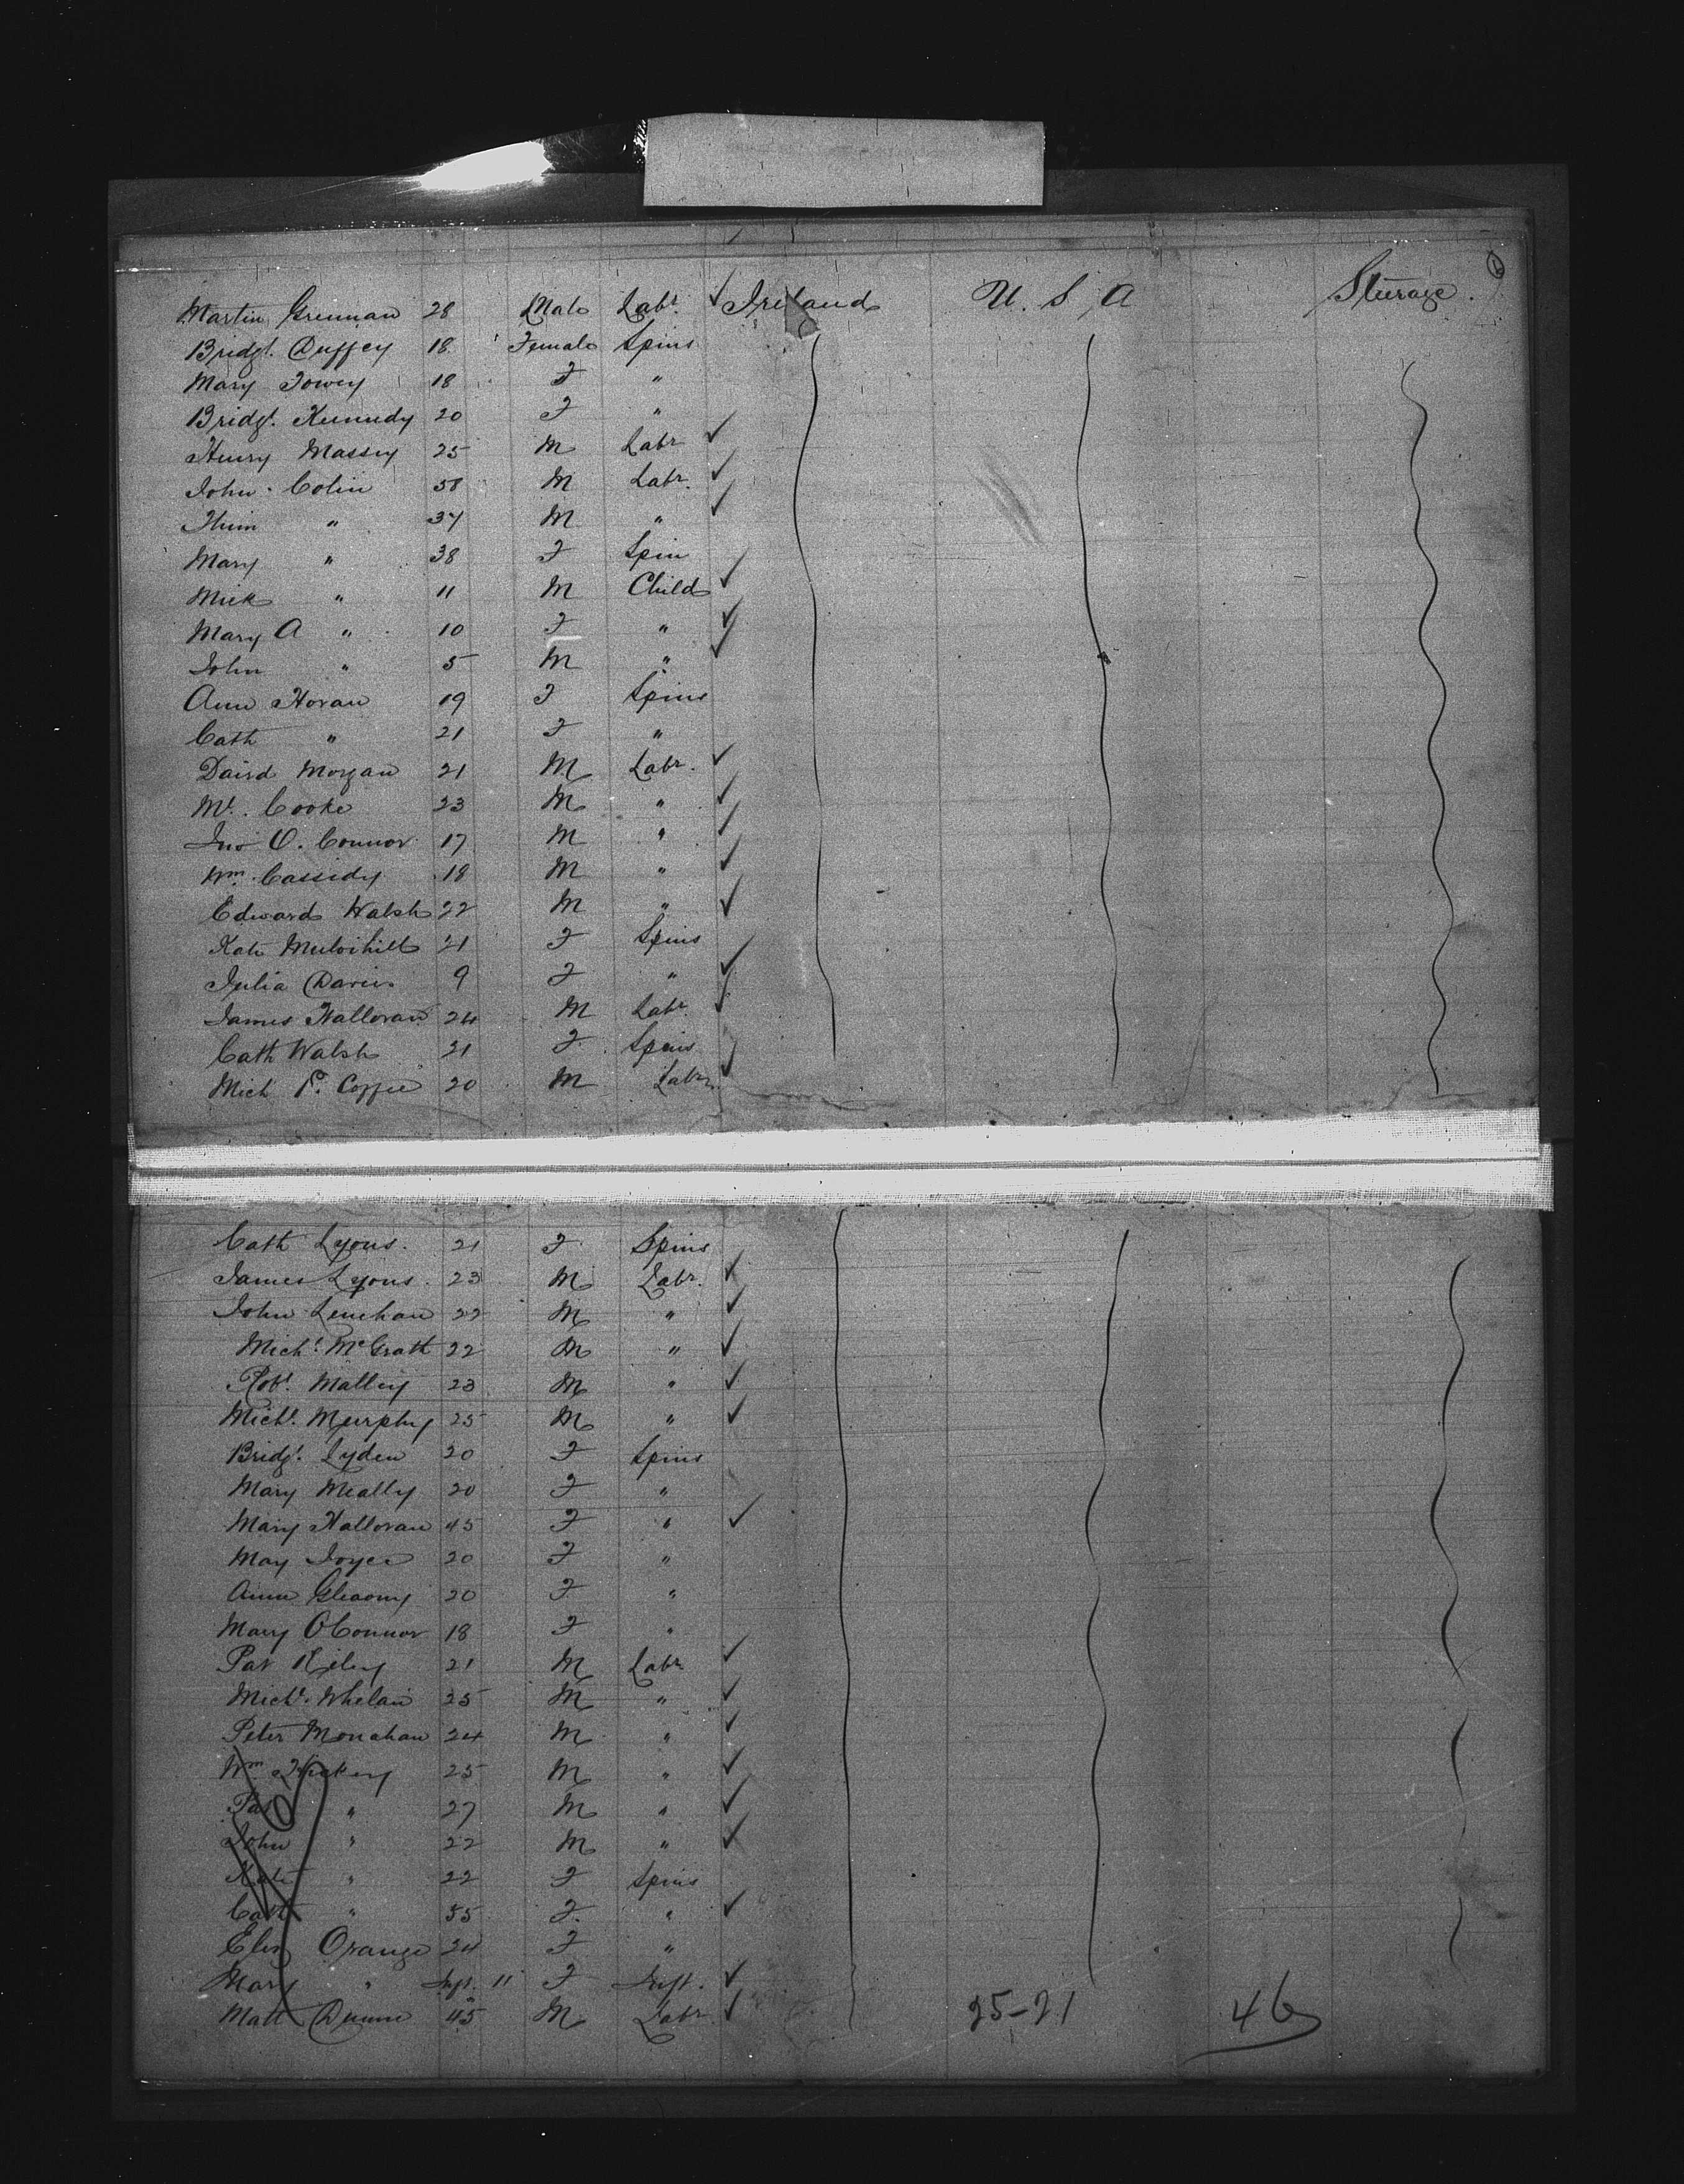 Martin Grennan 28 Male Labr. ✓ Ireland U. S. A Steerage.
Bridgt. Duffey 18. Female Spins
Mary Towey 18 F "
Bridgt. Kennedy 20 F "
Henry Massey 25 M Labr ✓
John Colin 58 M Labr. ✓
" 37 M " ✓
Mary " 38 F Spin
Mick " 11 M Child ✓
Mary A " 10 F " ✓
John " 5 M " ✓
Ann Horan 19 F Spins
Cath " 21 F "
David Morgan 21 M Labr. ✓
Mt. Cooke 23 M " ✓
Jno O. Connor 17 M " ✓
Wm. Cassidy 18 M " ✓
Edward Walsh 22 M " ✓
Kate Mulvihill 21 F Spins
Julia Davis 9 F " ✓
James Halloran 24 M Labr. ✓
Cath Walsh 21 F Spins
Mich P. Coffee 20 M Labr. ✓
Cath Lyons. 21 F Spins
James Lyons. 23 M Labr. ✓
John Lenehan 22 M " ✓
Michl. McGrath 22 M " ✓
Robt. Malley 23 M " ✓
Michl. Murphy 25 M " ✓
Bridgt. Lyden 20 F Spins
Mary Meally 20 F "
Mary Halloran 45 F " ✓
May Joyce 20 F "
Ann 20 F "
Mary OConnor 18 F "
Pat Riley 21 M Labr ✓
Michl. Whelan 25 M " ✓
Peter Monahan 24 M " ✓
Wm Hickey 25 M " ✓
Pat " 27 M " ✓
John " 22 M " ✓
Kate " 22 F Spins
Cath " 55 F. " ✓
Elen Orange 24 F "
Mary " Inft. 11 F Inft. ✓
Matt Dunne 45 M Labr ✓ 25-21 46